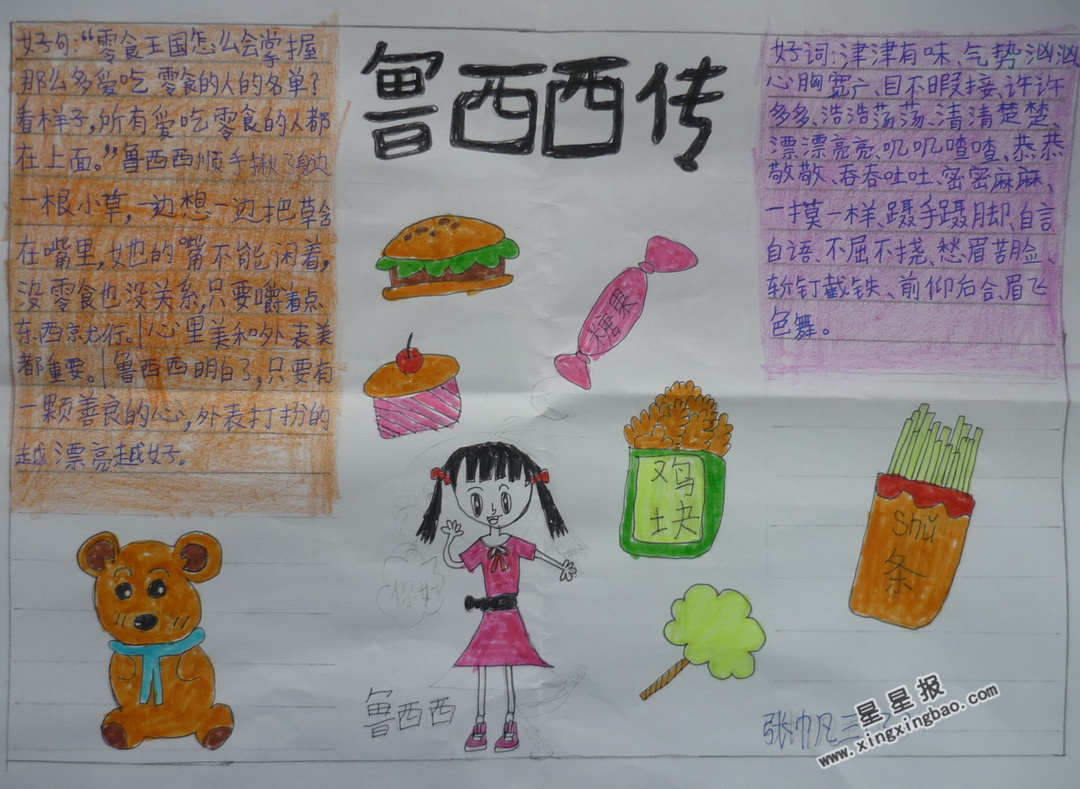 鲁西西传
好句:“零食王国怎么会掌握
那么多爱吃零食的人的名单?
看样子,所有爱吃零食的人都
在上面。”鲁西西顺手揪了身边
一根小草,一边想一边把草含
在嘴里,她的嘴不能闲着,
没零食也没关系,只要嚼着点
东西就行。心里美和外表美
都重要。鲁西西明白了,只要有
一颗善良的心,外表打扮的
越漂亮越好。
好词:津津有味、气势汹汹
心胸宽广、目不暇接、许许
多多、浩浩荡荡、清清楚楚、
漂漂亮亮、叽叽喳喳、恭恭
敬敬、吞吞吐吐、密密麻麻、
一摸一样、蹑手蹑脚、自言
自语、不屈不挠、愁眉苦脸、
斩钉截铁、前仰后合、眉飞
色舞。
糖果
鸡
块
shǔ
条
你好
鲁西西
张帆三
星星报
www.xingxingbao.com